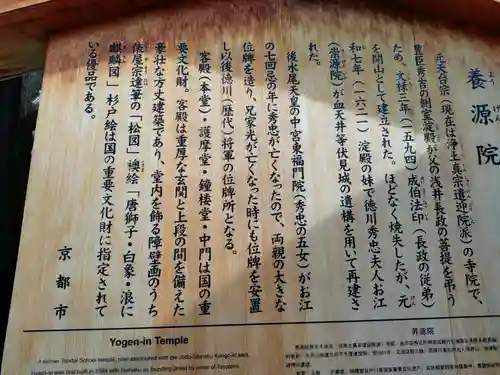 養源院
元天台宗(現在は浄土真宗遣迎院派)の寺院で、
豊臣秀吉の側室淀殿が父の浅井長政の菩提を弔う
ため、文禄三年(一五九四)成伯法印(長政の従弟)
を開山として建立された。ほどなく焼失したが、元
和七年(一六二一)淀殿の妹で徳川秀忠夫人お江
(崇源院)が血天井等伏見城の遺構を用いて再建さ
れた。
後水尾天皇の中宮東福門院(秀忠の五女)がお江
の七回忌の年に秀忠が亡くなったので、両親の大きな
位牌を造り、兄家光が亡くなった時にも位牌を安置
し以後徳川(歴代)将軍の位牌所となる。
客殿(本堂)・護摩堂・鐘楼堂・中門は国の重
要文化財。客殿は重厚な玄関と上段の間を備えた
豪壮な方丈建築であり、堂内を飾る障壁画のうち
俵屋宗達筆の「松図」襖絵「唐獅子・白象・浪に
麒麟図」杉戸絵は国の重要文化財に指定されて
いる優品である。
京都市
Yogen-in Temple
A former Tendai School temple, now associated with the Jodo-Shinshu Kengo-in sect.
养源院